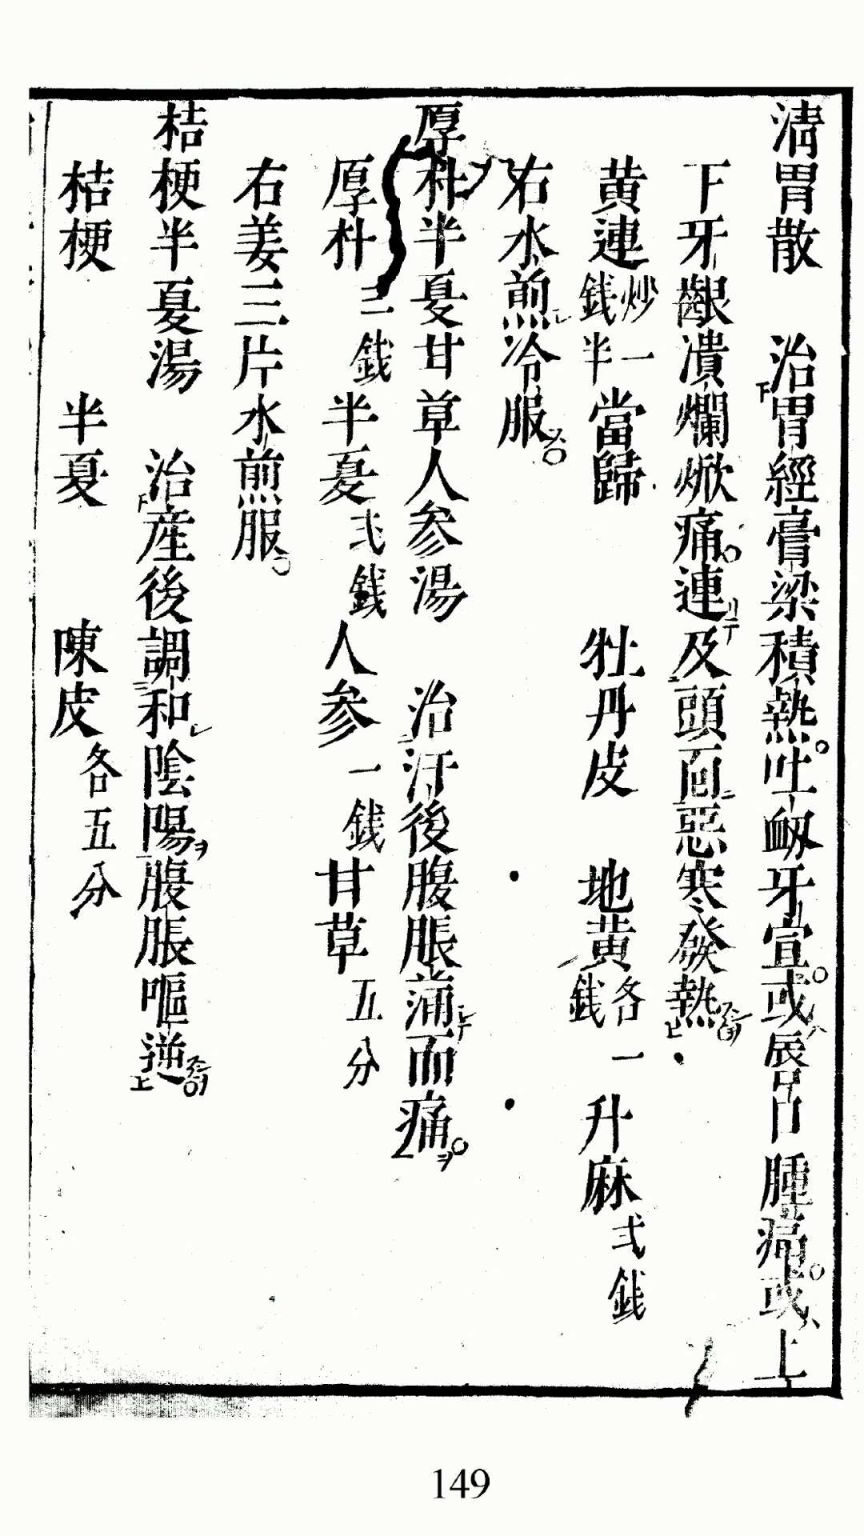 清胃散　治胃經膏梁積熱吐衂牙宣或唇口腫痛或上
下牙齦潰爛焮痛連及頭面惡寒發熱
黄連炒一錢半當歸　牡丹皮　地黄各一錢升麻弍錢
右水煎冷服
厚朴半夏甘草人参湯　治汗後腹脹蒲而痛
厚朴三錢半夏弍錢人参一錢甘草五分
右姜三片水煎服
桔梗半夏湯　治産後調和陰陽腹脹嘔逆
桔梗　半夏　陳皮各五分
149